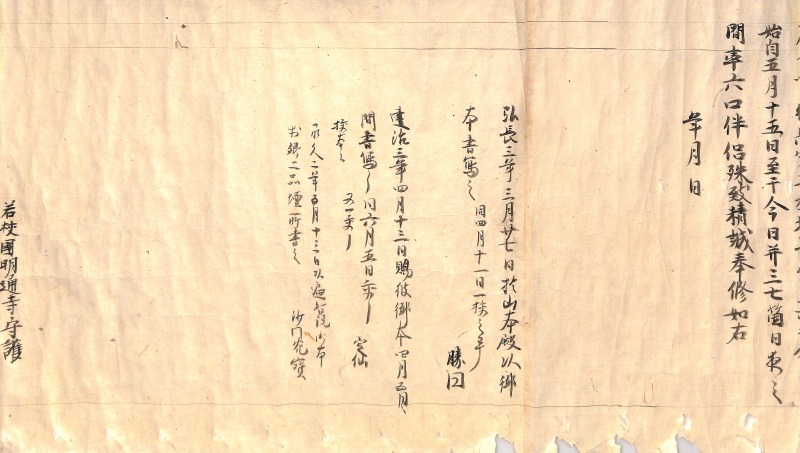 始自五月十五日至于今日并三七箇日夜之
間率六口伴侶殊致精誠奉修如右
年月日
弘長三年三月廿七日於山本殿以御
本書写之 同四月十一日一校之畢
勝円
建治三年四月十三日賜彼御本四月五月
間書写了同六月五日交了
定仙
校本云
又一交了
永久二年五月十三日以遍智院御本
於二品壇所書之
沙門
若狭国明通寺守護